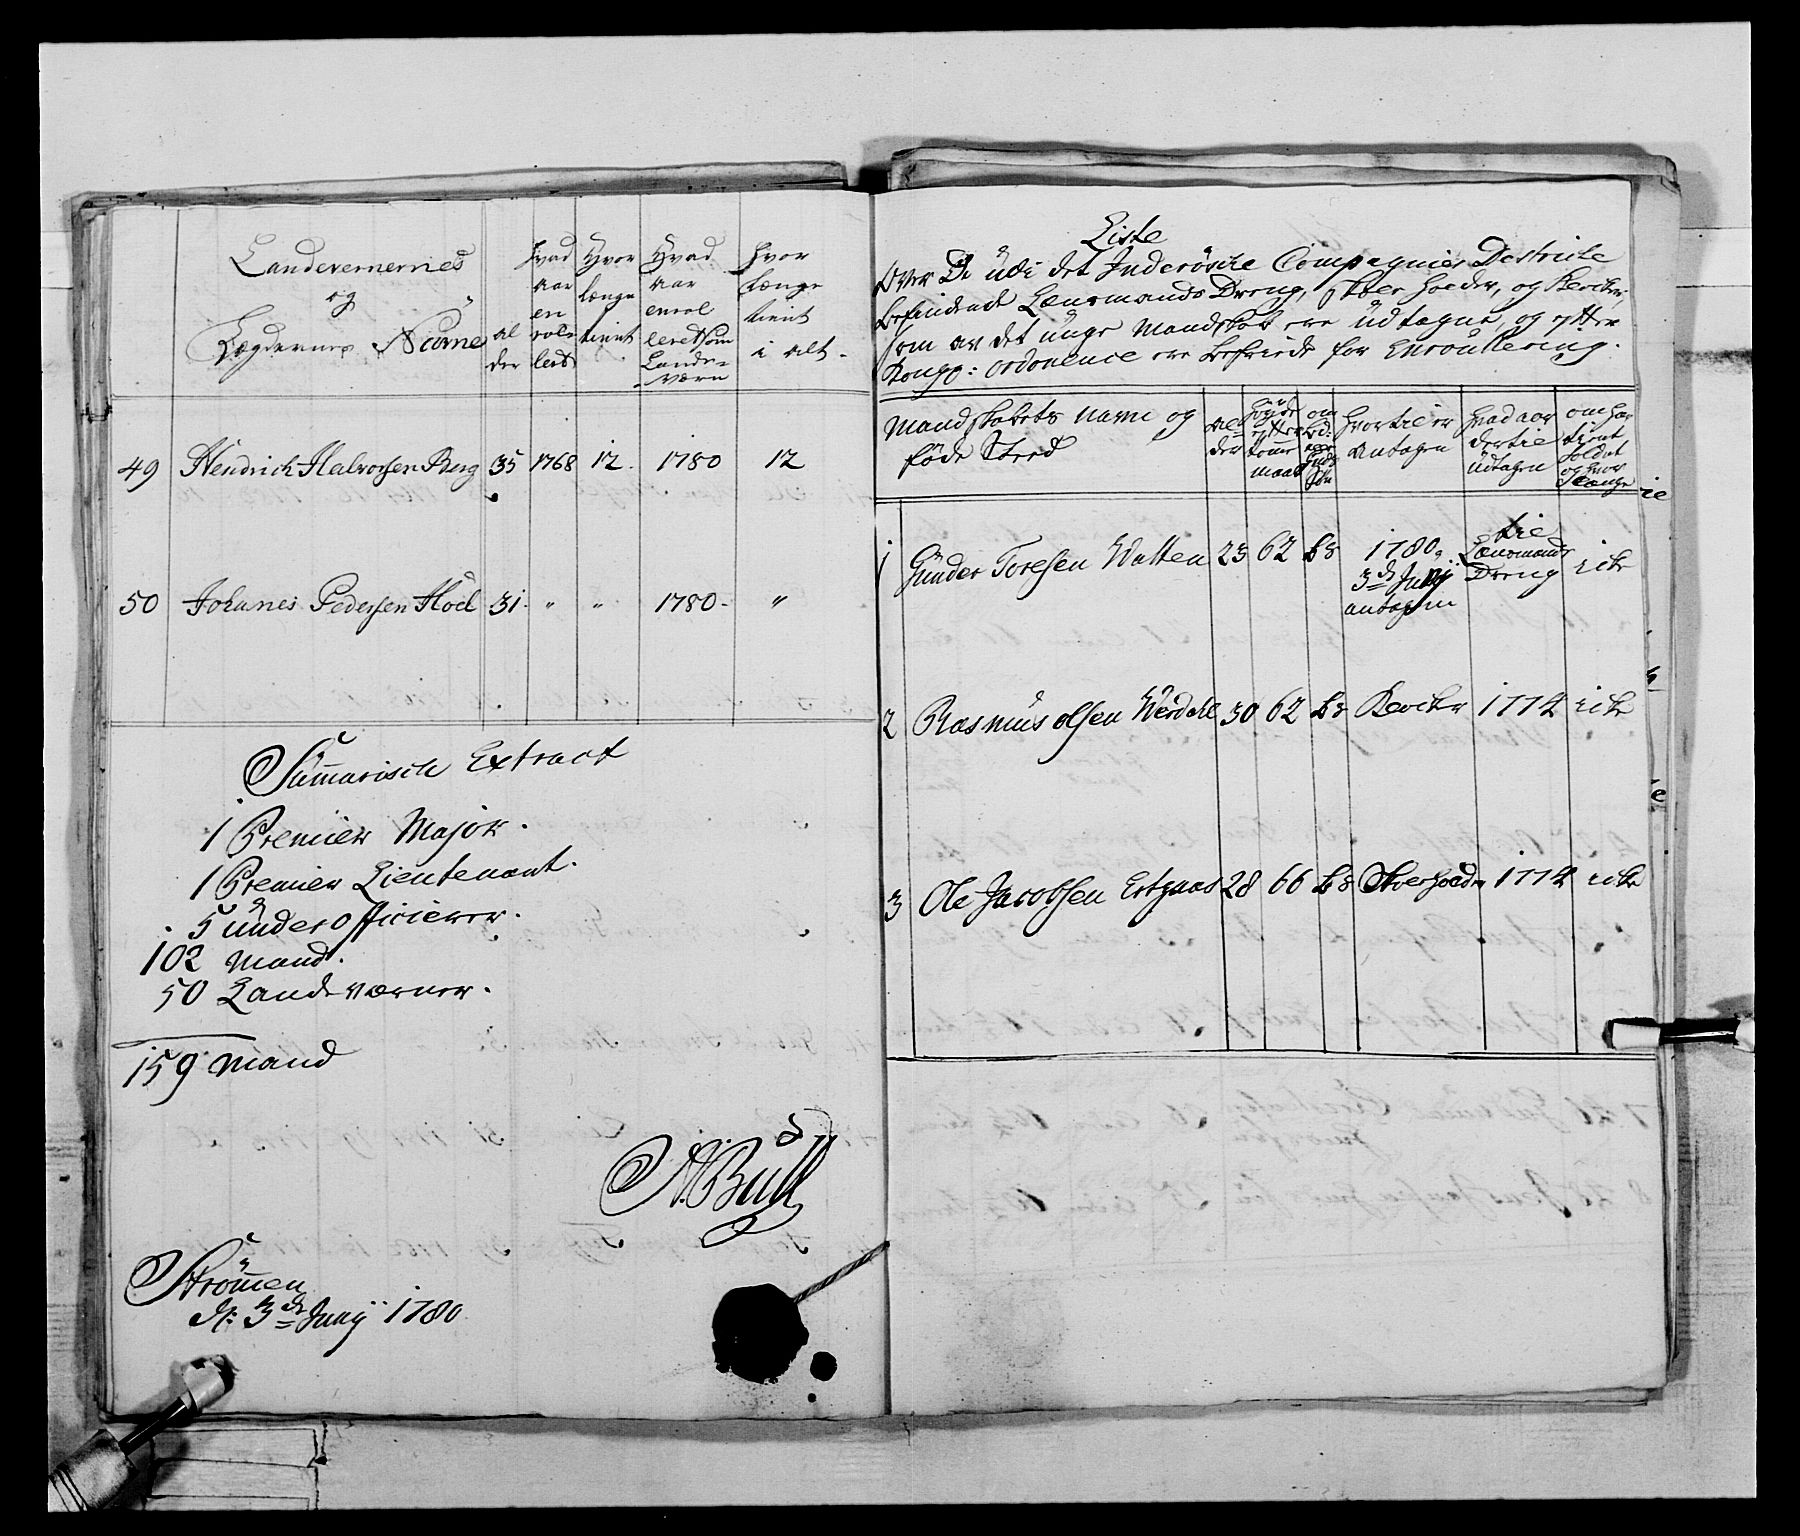 Landevernernes
og
Lægdernes Nafne
al
der
Hvad
aar
en
rol-
lert
Hvor
længe
tient
Hvad
aar
enrol
leret som
Lande-
værn
Hvor
længe
tient
i alt.
49 Hendrich Halvorsen Berg 35 1768 12. 1780 12
50 Johanes Pedersen Hoel 31. " " 1780. "
Summarisch Extract
1 Premier Major.
1 Premier Lieutenant.
5 under officierer.
102 Mand.
50 Landeværner.
159 Mand
A. Bull
Strömen
d: 3de Junij 1780
Liste
Over De udi det Inderösche Compagnies Destricte
befindende Lænsmands Dreng, og
som av det unge Mandskab ere udtagne, og efter
Kongl: ordonence ere befriede for Enroullering.
Mandskabets Navne og
føde Sted
Al-
der
Høyde
efter
tomme
maal
om
Hvortil er
Antagen
Hvad aar
dertil
udtagen
om har
tient
Soldat
og hvor
længe
1 Gunder Toresen Watten 23 62 1780 3de Junij antagen til Lænsmands Dreng icke
2 Rasmus olsen Werdahl 30 62 1774 icke
3 Ole Jacobsen 28 66 1774 icke